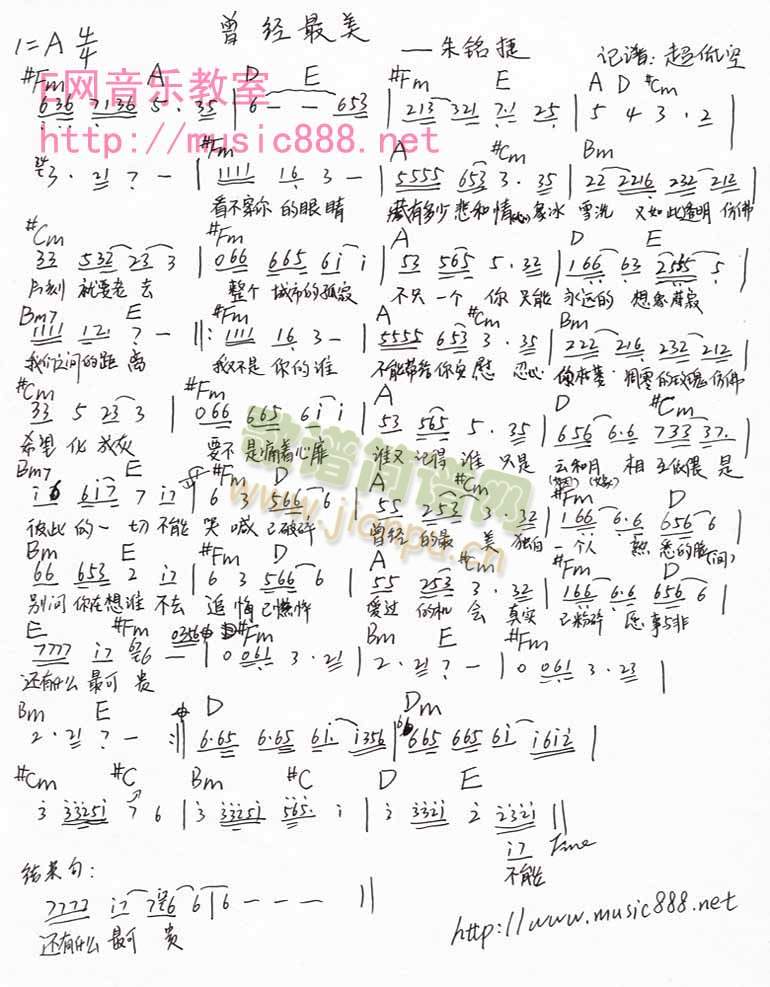 曾经最美
1=A 4/4
—朱铭捷
记谱:超低空
E网音乐教室
http://music888.net
#Fm A D E #Fm E A D #Cm
636 7136 5· 35 | 6 - - 653 | 213 321 7·1 25 | 5 4 3 · 2 |
#Fm A #Cm Bm
3· 21 7 - | 1111 16 3 - | 5555 653 3· 35 | 22 2216 232 212
看不穿你的眼睛 藏有多少悲和情 冰雪洗 又如此透明 仿佛
#Cm #Fm A D E
33 532 23 3 | 066 665 6i i | 53 565 5· 32 | 166 63 2555 5 |
片刻就要老去 整个城市的孤寂 不只一个你 只能永远的想象
Bm7 E #Fm A #Cm Bm
1111 121 7 - ||: 1111 16 3 - | 5555 653 3· 35 | 222 216 232 212
我们之间的距离 我又不是你的谁 不能带给你安慰 忍心 凋零的玫瑰 仿佛
#Cm #Fm A D #Cm
33 5 23 3 | 066 665 6i i | 53 565 5· 35 | 656 6·6 733 37·
希望化成灰 要不是痛着心扉 谁又记得谁 只是云和月 相互依偎 是
Bm7 E #Fm D A #Cm #Fm D
i6 6i7 7 i7 | 6 3 566 6 | 55 253 3· 32 | 166 6·6 656 6 |
彼此的一切不能 哭喊已破碎 曾经的最美 独自一个人 熟悉的
Bm E #Fm D A #Cm #Fm D
66 653 2 i7 | 6 3 566 6 | 55 253 3· 32 | 166 6·6 656 6 |
别问你在想谁 不去追悔已憔悴 爱过的机会 真实已粉碎 愿事与非
E #Fm #Fm Bm E #Fm
7777 i7 6 - | 0 061 3· 21 | 2· 21 7 - | 0 061 3· 23 |
还有什么最可贵
Bm E D Dm
2· 21 7 - :|| 6·65 6·65 6i· i356 | 665 665 6i i6i2 |
#Cm #C Bm #C D E
3 33251 7 6 | 3 33251 565· i | 2 3321 2 2321 ||
i7 Fine
不能
结束句:
7777 i7 766 6 | 6 - - - ||
还有什么最可贵
http://www.music888.net
歌谱简谱网
www.jianpu.cn